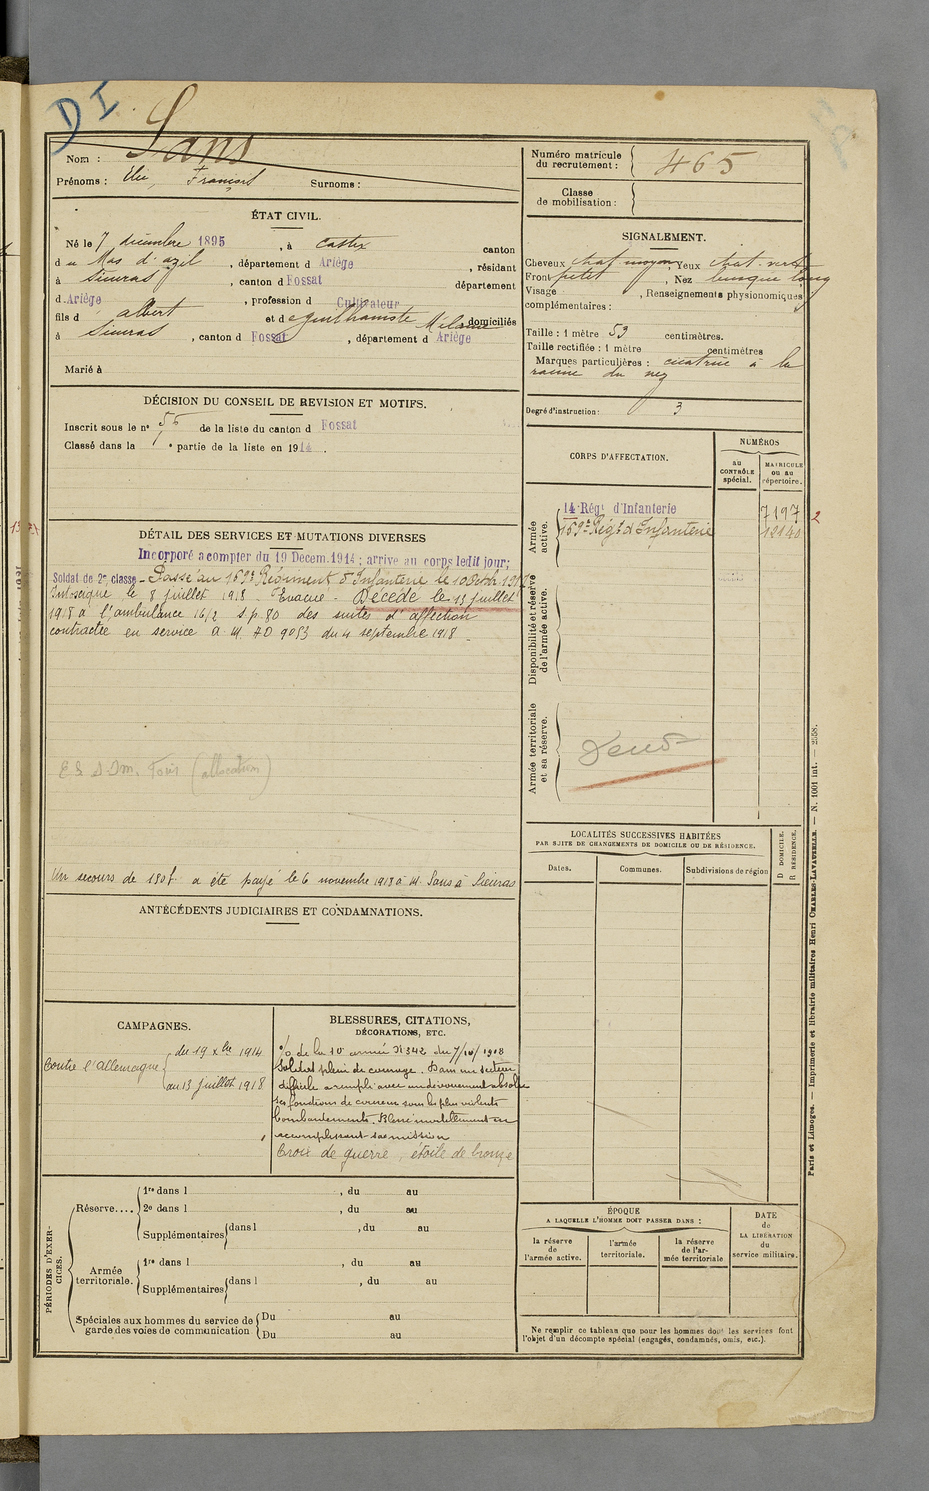 DI
Nom : Sans
Prénoms : Elie, François Surnoms :
ÉTAT CIVIL.
Né le 7 décembre 1895, à Castex canton
du Mas d'azil, département d Ariège, résidant
à Sieuras, canton d Fossat département
d Ariège, profession d Cultivateur
fils d albert et de domiciliés
à Sieuras, canton d Fossat, département d Ariège
Marié à
DÉCISION DU CONSEIL DE REVISION ET MOTIFS.
Inscrit sous le n° 56 de la liste du canton d Fossat
Classé dans la 1e partie de la liste en 1914.
DÉTAIL DES SERVICES ET MUTATIONS DIVERSES
Incorporé à compter du 19 Décem. 1914 ; arrivé au corps ledit jour;
Soldat de 2e classe – Passé au 169e Régiment d'Infanterie le 10
le 8 juillet 1918 - Evacué - Décédé le 13 juillet
1918 à l'ambulance 16/2 s.p. 80 des suites d'affection
contractée en service A.M. AD 9053 du 4 septembre 1918 _
(allocation)
Un secours de 150f. a été payé le 6 novembre 1918 à M. Sans à Sieuras
ANTÉCÉDENTS JUDICIAIRES ET CONDAMNATIONS.
CAMPAGNES.
Contre l'Allemagne
du 19 Xbre 1914
au 13 juillet 1918
BLESSURES, CITATIONS,
DÉCORATIONS, ETC.
% de la 10e armée N° 342 du
Soldat plein de courage. Dans un secteur
difficile a rempli avec un dévouement absolu
ses fonctions de coureur sous les plus violents
bombardements. Blessé mortellement en
accomplissant sa mission
Croix de guerre, étoile de bronze
PÉRIODES D'EXERCICES.
Réserve.... 1re dans l , du au
2e dans l , du au
Supplémentaires dans l , du au
Armée territoriale. 1re dans l , du au
Supplémentaires dans l , du au
Spéciales aux hommes du service de Du au
garde des voies de communication Du au
Numéro matricule
du recrutement : 465
Classe
de mobilisation :
SIGNALEMENT.
Cheveux chat moyen, Yeux chat. verts
Front petit, Nez long
Visage , Renseignements physionomiques
complémentaires :
Taille : 1 mètre 59 centimètres.
Taille rectifiée : 1 mètre centimètres
Marques particulières : cicatrice à la
racine du nez
Degré d'instruction : 3
CORPS D'AFFECTATION.
NUMÉROS
au
CONTRÔLE
spécial.
MATRICULE
ou au
répertoire.
Armée
active.
14 Régt d'Infanterie 7197 2
169e Régt d'Infanterie 12140
Disponibilité et réserve
de l'armée active.
Armée territoriale
et sa réserve.
LOCALITÉS SUCCESSIVES HABITÉES
PAR SUITE DE CHANGEMENTS DE DOMICILE OU DE RÉSIDENCE.
Dates. Communes. Subdivisions de région
D DOMICILE.
R RÉSIDENCE.
ÉPOQUE
A LAQUELLE L'HOMME DOIT PASSER DANS :
la réserve
de
l'armée active.
l'armée
territoriale.
la réserve
de l'armée territoriale
DATE
de
LA LIBÉRATION
du
service militaire.
Ne remplir ce tableau que pour les hommes dont les services font
l'objet d'un décompte spécial (engagés, condamnés, omis, etc.).
Paris et Limoges. — Imprimerie et librairie militaires Henri CHARLES-LAVAUZELLE. — N. 1001 int. — 2558.